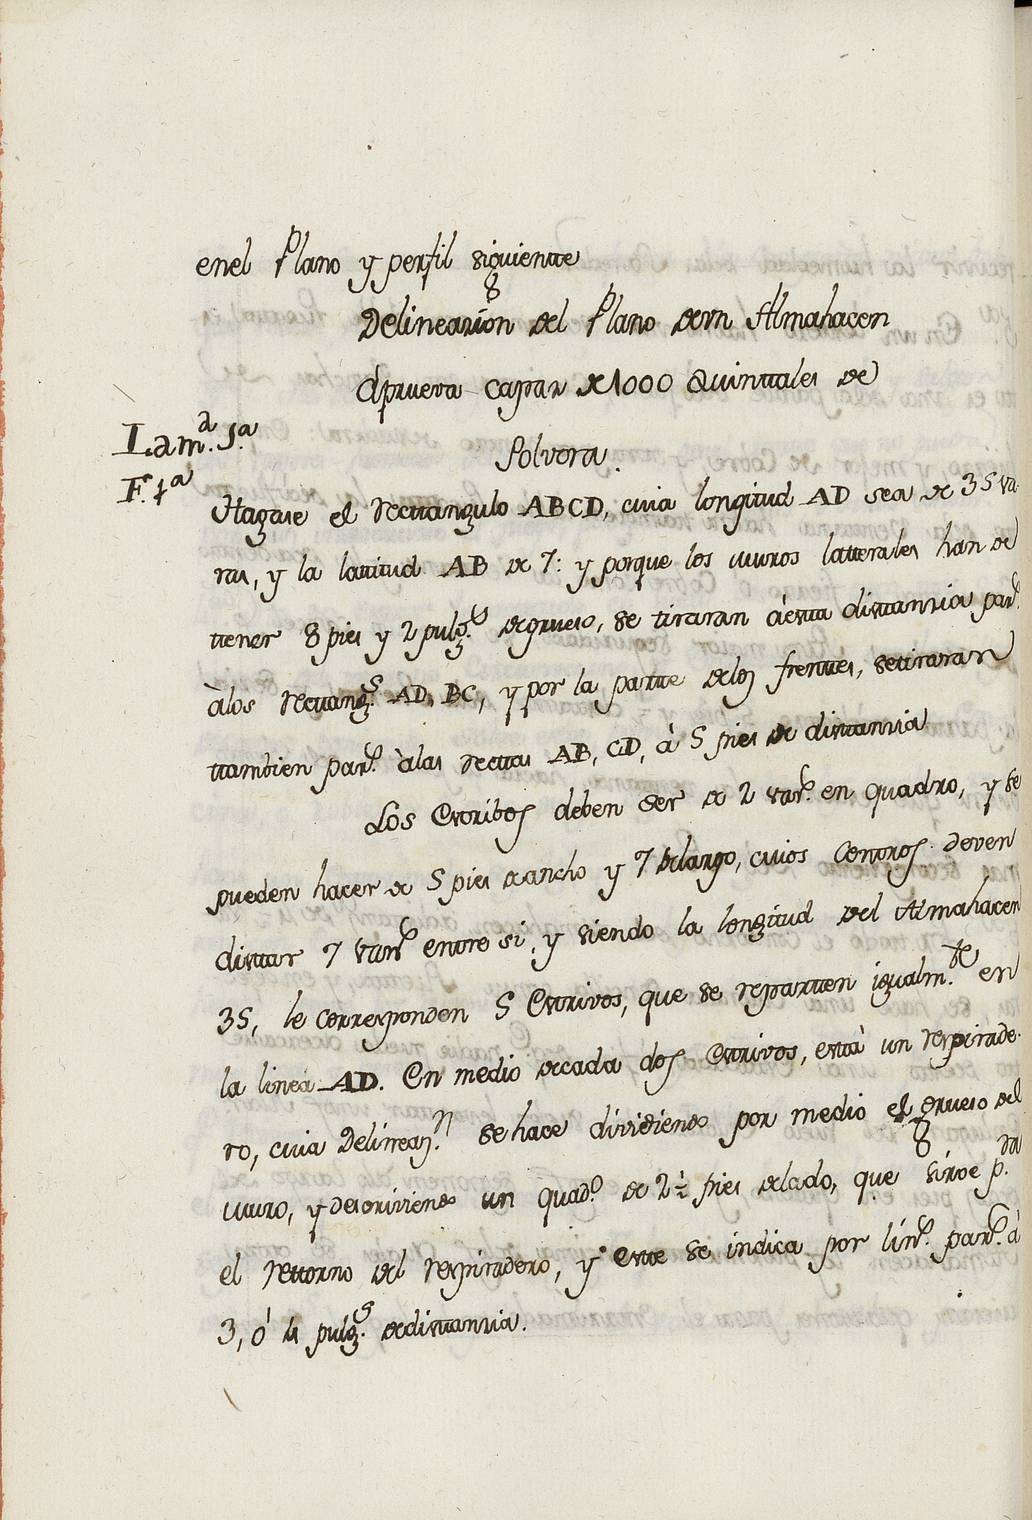 enel Plano y perfil siguiente
Delineazion del Plano deun Almahacen
aprueva capaz de 1000 Quintales de
Polvora.
Lam.ª 5.ª
F.ª 1.ª
Hagase el rectangulo ABCD, cuia longitud AD sea de 35 va-
ras, y la latitud AB de 7: y porque los muros latterales han de
ttener 8 pies y 2 pulg.s degrueso, se tiraran àesta distanzia par.s
àlos rectang.s AD, BC, y por la partte delos frenttes, setiraran
ttambien par.s àlas rectas AB, CD, à 5 pies de distanzia
Los Estribos deben ser de 2 var.s en quadro, y se
pueden hacer de 5 pies deancho y 7 delargo, cuios Centros deven
disttar 7 var.s entre si, y siendo la longitud del Almahacen
35, le corresponden 5 Estrivos, que se repartten igualm.te en
la linea AD. En medio decada dos Estrivos, està un respirade-
ro, cuia Delineaz.n se hace dividiendo por medio el grueso del
muro, y descriviendo un quad.o de 2 ½ pies delado, que sirve p.ra
el rettorno del respiradero, y este se indica por lin.s par.s à
3, ó 4 pulg.s dedistanzia.